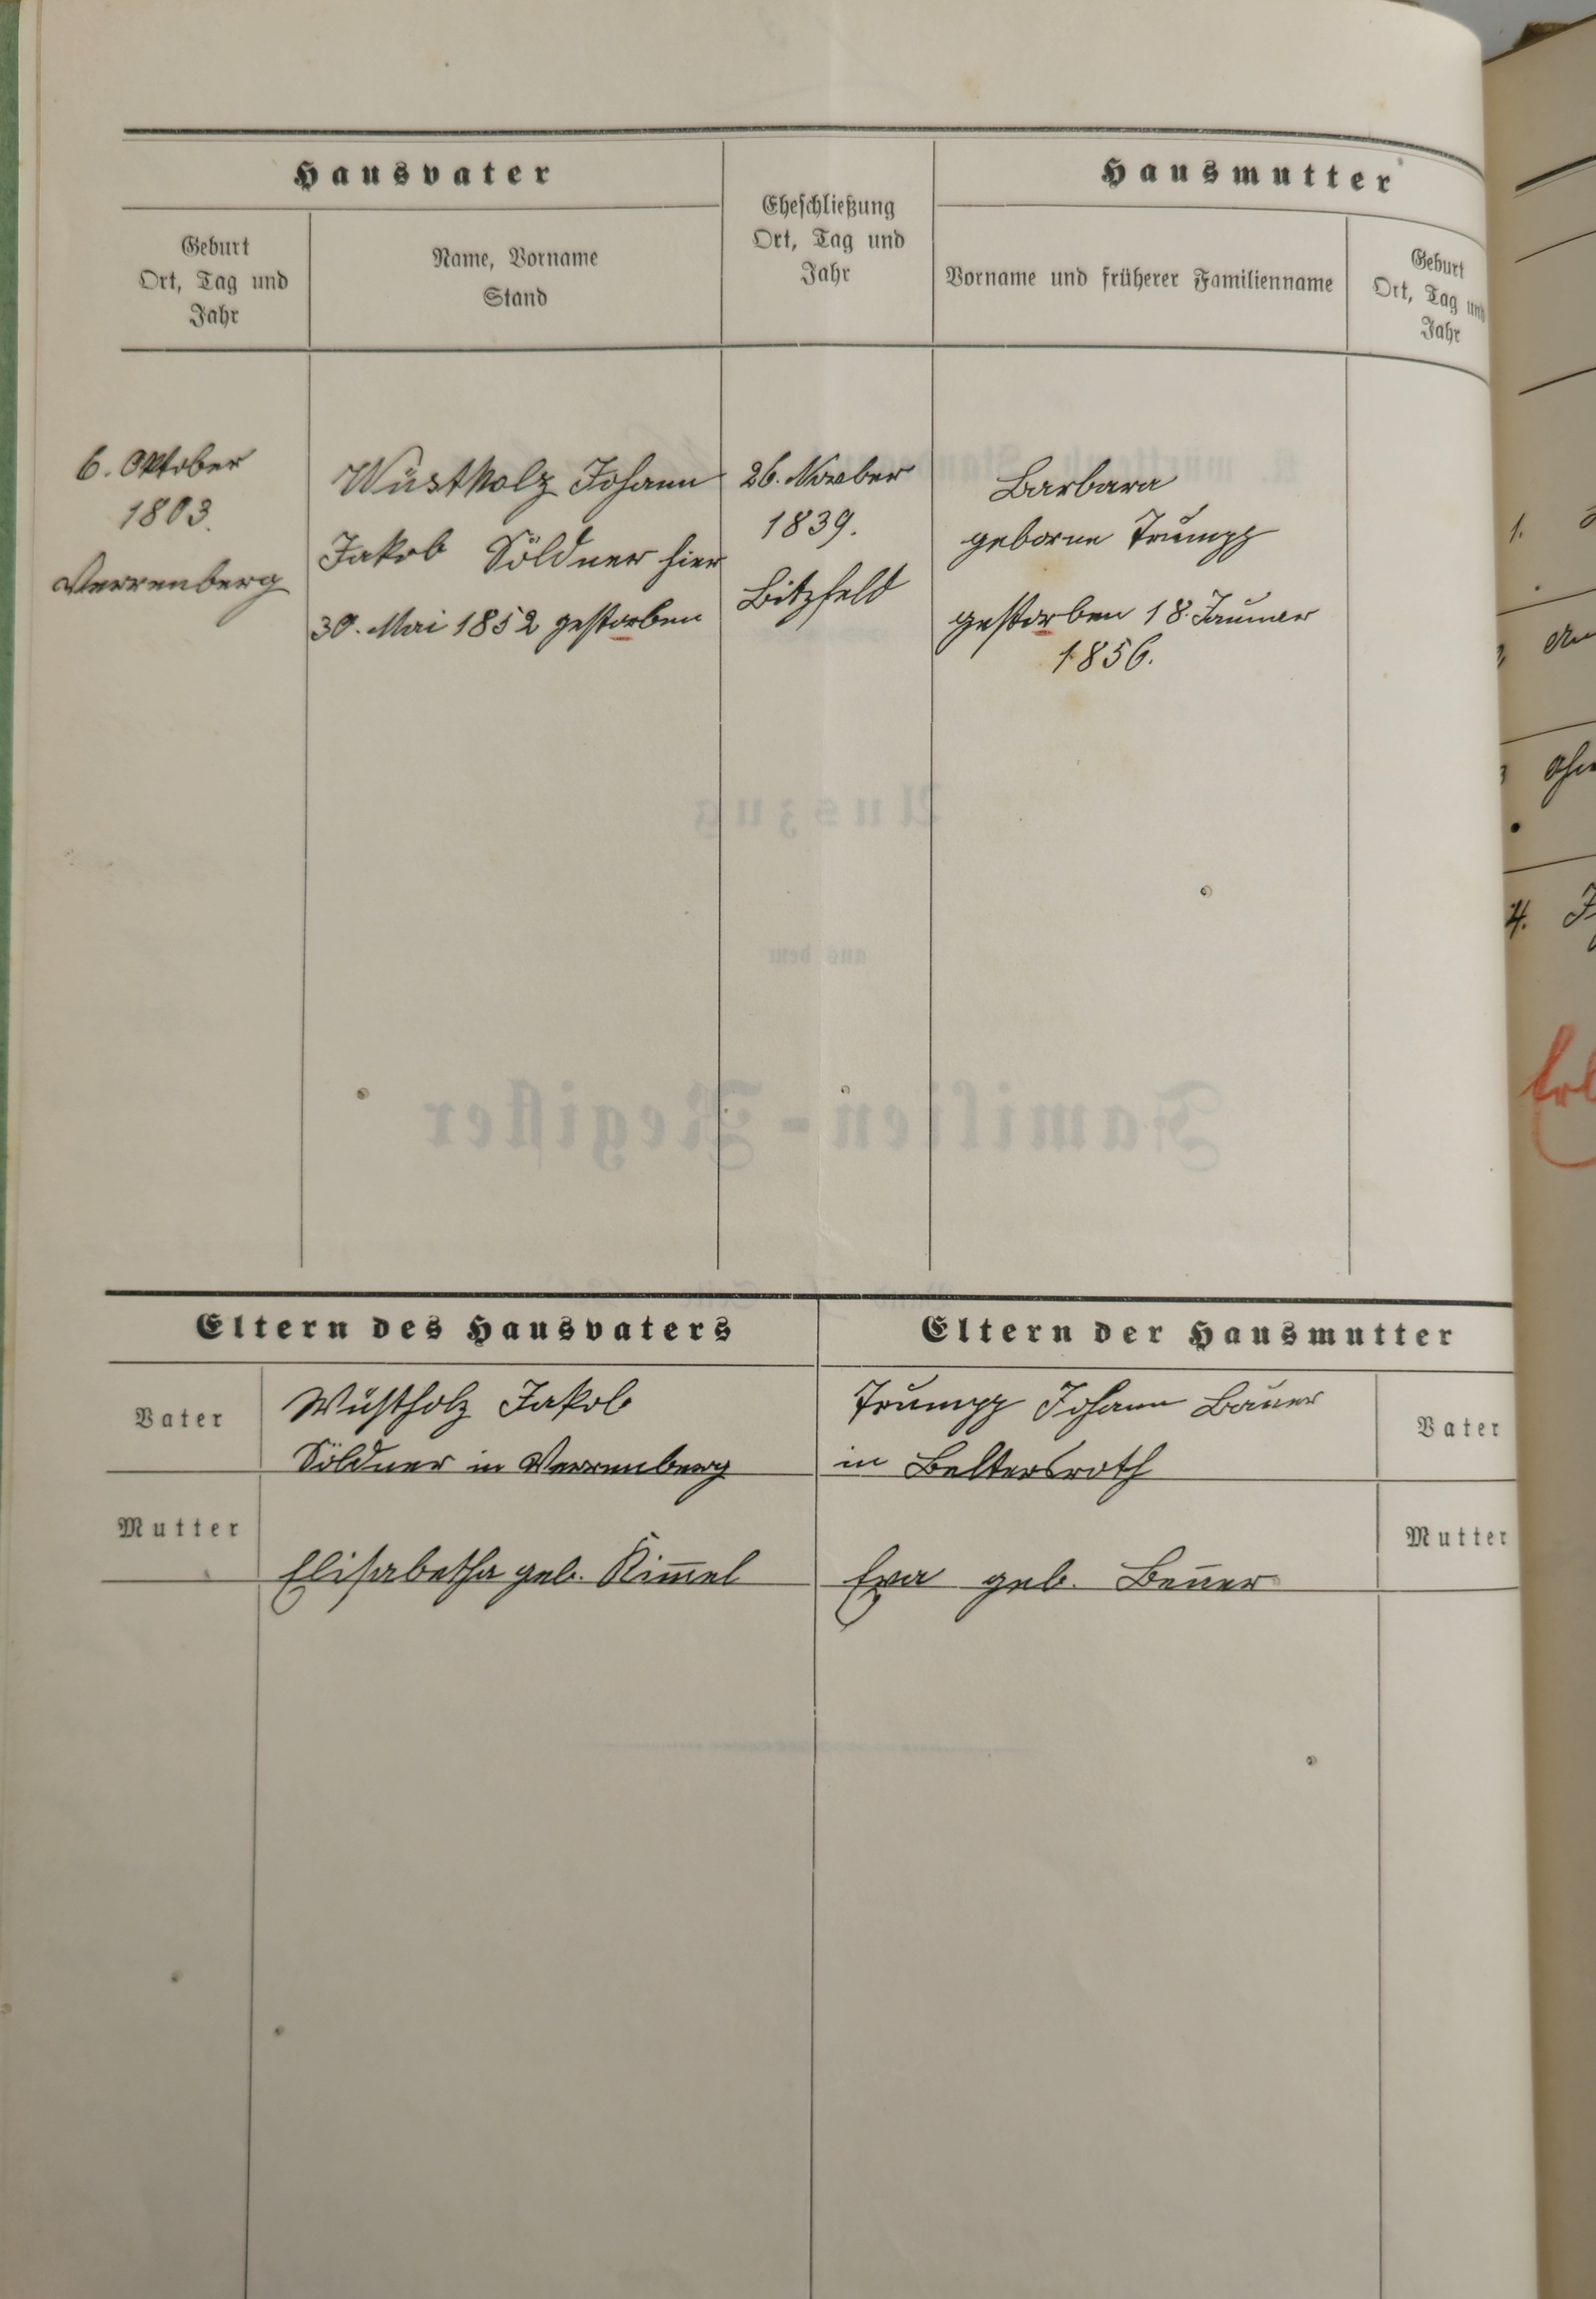 Hausvater
Eheschließung
Ort, Tag und
Jahr
Hausmutter
Geburt
Ort, Tag und
Jahr
Name, Vorname
Stand
Vorname und früherer Familienname
Geburt
Ort, Tag und
Jahr
6. Oktober
1803.
Verrenberg
Wüstholz Johann
Jakob Söldner hier
30. Mai 1852 gestorben
26. November
1839.
Bitzfeld
Barbara
geborne Trumpp
gestorben 18. Januar
1856.
1.
4.
Auszug
aus dem
Familien-Register
Eltern des Hausvaters
Eltern der Hausmutter
Vater
Wüstholz Jakob
Söldner in Verrenberg
Trumpp Johann Bauer
in Beltersroth
Vater
Mutter
Elisabetha geb. Kim̅el
Eva geb. Ben̅er
Mutter